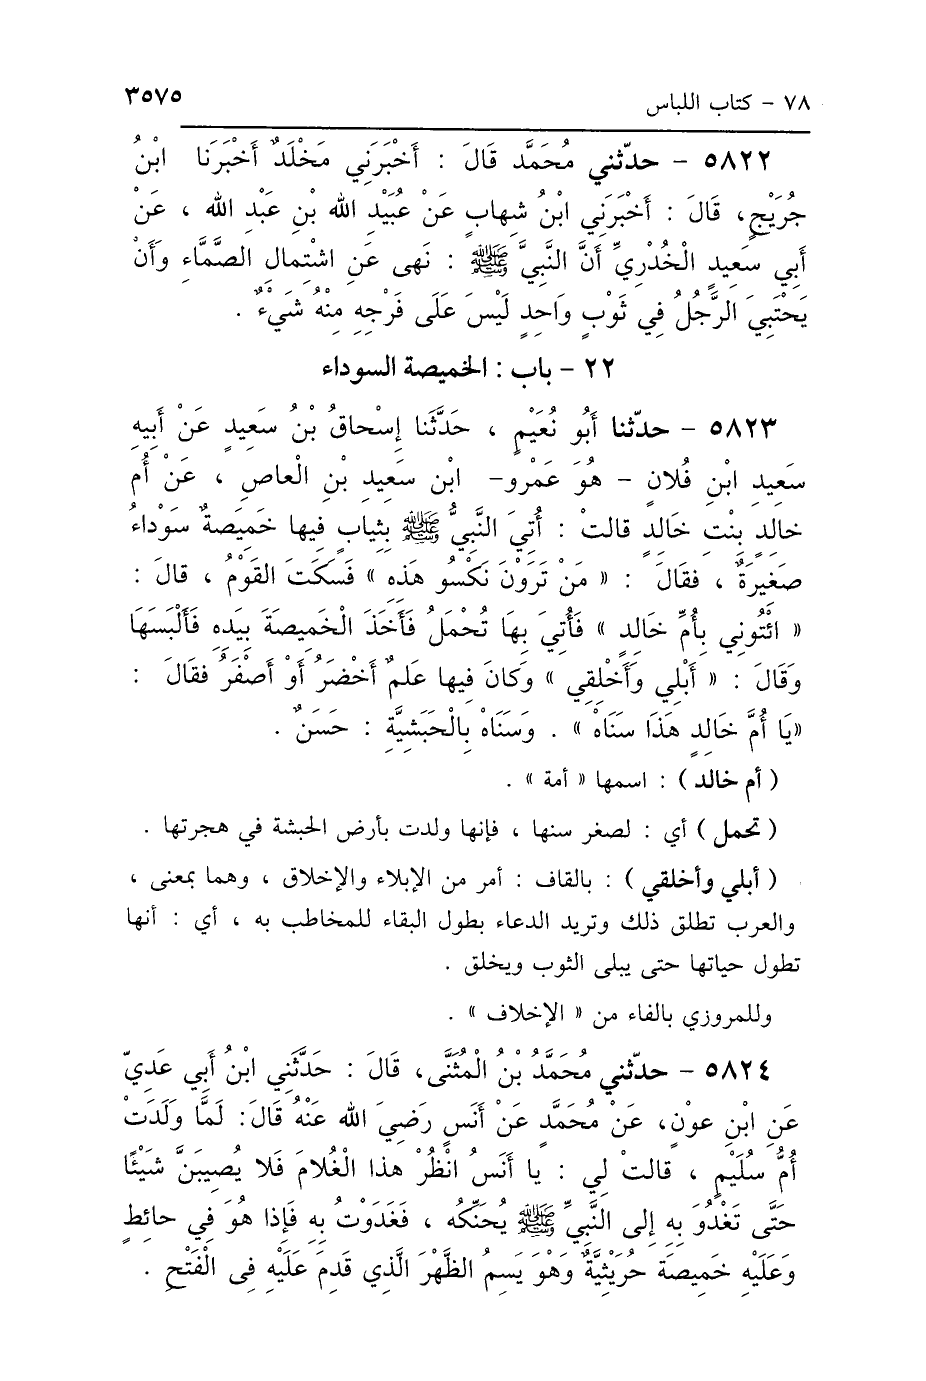 ٧٨ - كتاب اللباس ٣٥٧٥
٥٨٢٢ - حدّثني مُحَمَّد قَالَ : أَخْبَرَنِي مَخْلَدٌ أَخْبَرَنَا ابْنُ
جُرَيْجٍ، قَالَ : أَخْبَرَنِي ابْنُ شِهابٍ عَنْ عُبَيْدِ الله بْنِ عَبْدِ الله ، عَنْ
أَبِي سَعِيدٍ الْخُدْرِيِّ أَنَّ النَّبِيَّ ﷺ : نَهى عَنِ اشْتِمالِ الصَّمَّاءِ وَأَنْ
يَحْتَبِيَ الرَّجُلُ فِي ثَوْبٍ وَاحِدٍ لَيْسَ عَلَى فَرْجِهِ مِنْهُ شَيْءٌ .
٢٢ - باب : الخميصة السوداء
٥٨٢٣ - حدّثنا أَبُو نُعَيْمٍ ، حَدَّثَنَا إِسْحاقُ بْنُ سَعِيدٍ عَنْ أَبِيهِ
سَعِيدِ ابْنِ فُلانٍ - هُوَ عَمْرو- ابْنِ سعِيدِ بْنِ الْعاصِ ، عَنْ أُم
خالدٍ بِنْتِ خَالِدٍ قالتْ : أُتِيَ النَّبِيُّ ﷺ بِثِيابٍ فِيها خَمِيصَةٌ سَوْداءُ
صَغِيرَةٌ ، فقَالَ : « مَنْ تَرَوْنَ نَكْسُو هَذِهِ » فَسَكَتَ القَوْمُ ، قالَ :
« ائْتُونِي بِأُمِّ خَالِدٍ » فَأُتِيَ بِهَا تُحْمَلُ فَأَخَذَ الْخَمِيصَةَ بِيَدِهِ فَأَلْبَسَهَا
وَقَالَ : « أَبْلِي وَأَخْلِقِي » وَكانَ فِيها عَلَمٌ أَخْضَرُ أَوْ أَصْفَرُ فقَالَ :
«يَا أُمَّ خَالِدٍ هَذَا سَنَاهْ » . وَسَنَاهْ بِالْحَبَشِيَّةِ : حَسَنٌ .
( أم خالد ) : اسمها « أمة » .
( تحمل ) أي : لصغر سنها ، فإنها ولدت بأرض الحبشة في هجرتها .
( أبلي وأخلقي ) : بالقاف : أمر من الإبلاء والإخلاق ، وهما بمعنى ،
والعرب تطلق ذلك وتريد الدعاء بطول البقاء للمخاطب به ، أي : أنها
تطول حياتها حتى يبلى الثوب ويخلق .
وللمروزي بالفاء من « الإخلاف » .
٥٨٢٤ - حدّثني مُحَمَّدُ بْنُ الْمُثَنَّى، قَالَ : حَدَّثَنِي ابْنُ أَبِي عَدِيّ
عَنِ ابْنِ عوْنٍ، عَنْ مُحَمَّدٍ عَنْ أَنَسٍ رَضِيَ الله عَنْهُ قَالَ: لَمَّا وَلَدَتْ
أُمُّ سُلَيْمٍ ، قالتْ لِي : يا أَنَسُ انْظُرْ هذا الْغُلامَ فَلا يُصِيبَنَّ شَيْئًا
حَتَّى تَغْدُوَ بِهِ إلى النَّبِيِّ ﷺ يُحَنِّكُه ، فَغَدَوْتُ بِهِ فَإِذا هُوَ فِي حائِطٍ
وَعَلَيْهِ خَمِيصَة حُرَيْثِيَّةٌ وَهْوَ يَسِمُ الظَّهْرَ الَّذِي قَدِمَ عَلَيْهِ فِى الْفَتْحِ .